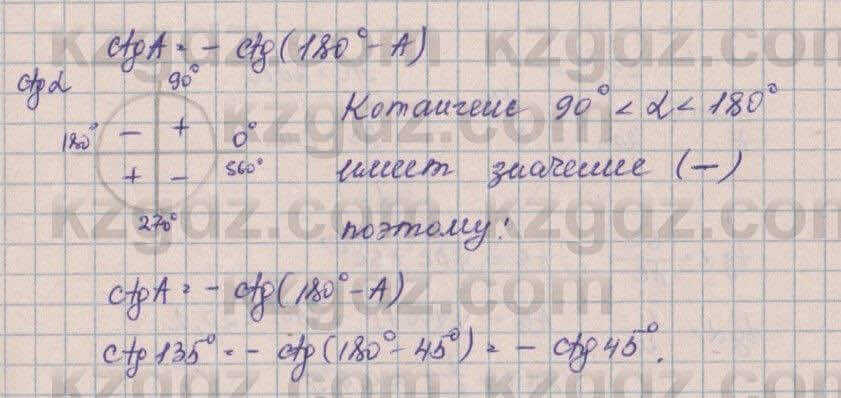 ctgA = - ctg(180° - A)
ctg α
90°
180° - + 0°
+ - 360°
270°
Котангенс 90° < α < 180°
имеет значение (-)
поэтому:
ctgA = - ctg(180° - A)
ctg 135° = - ctg(180° - 45°) = - ctg 45°.
kzgdz.com